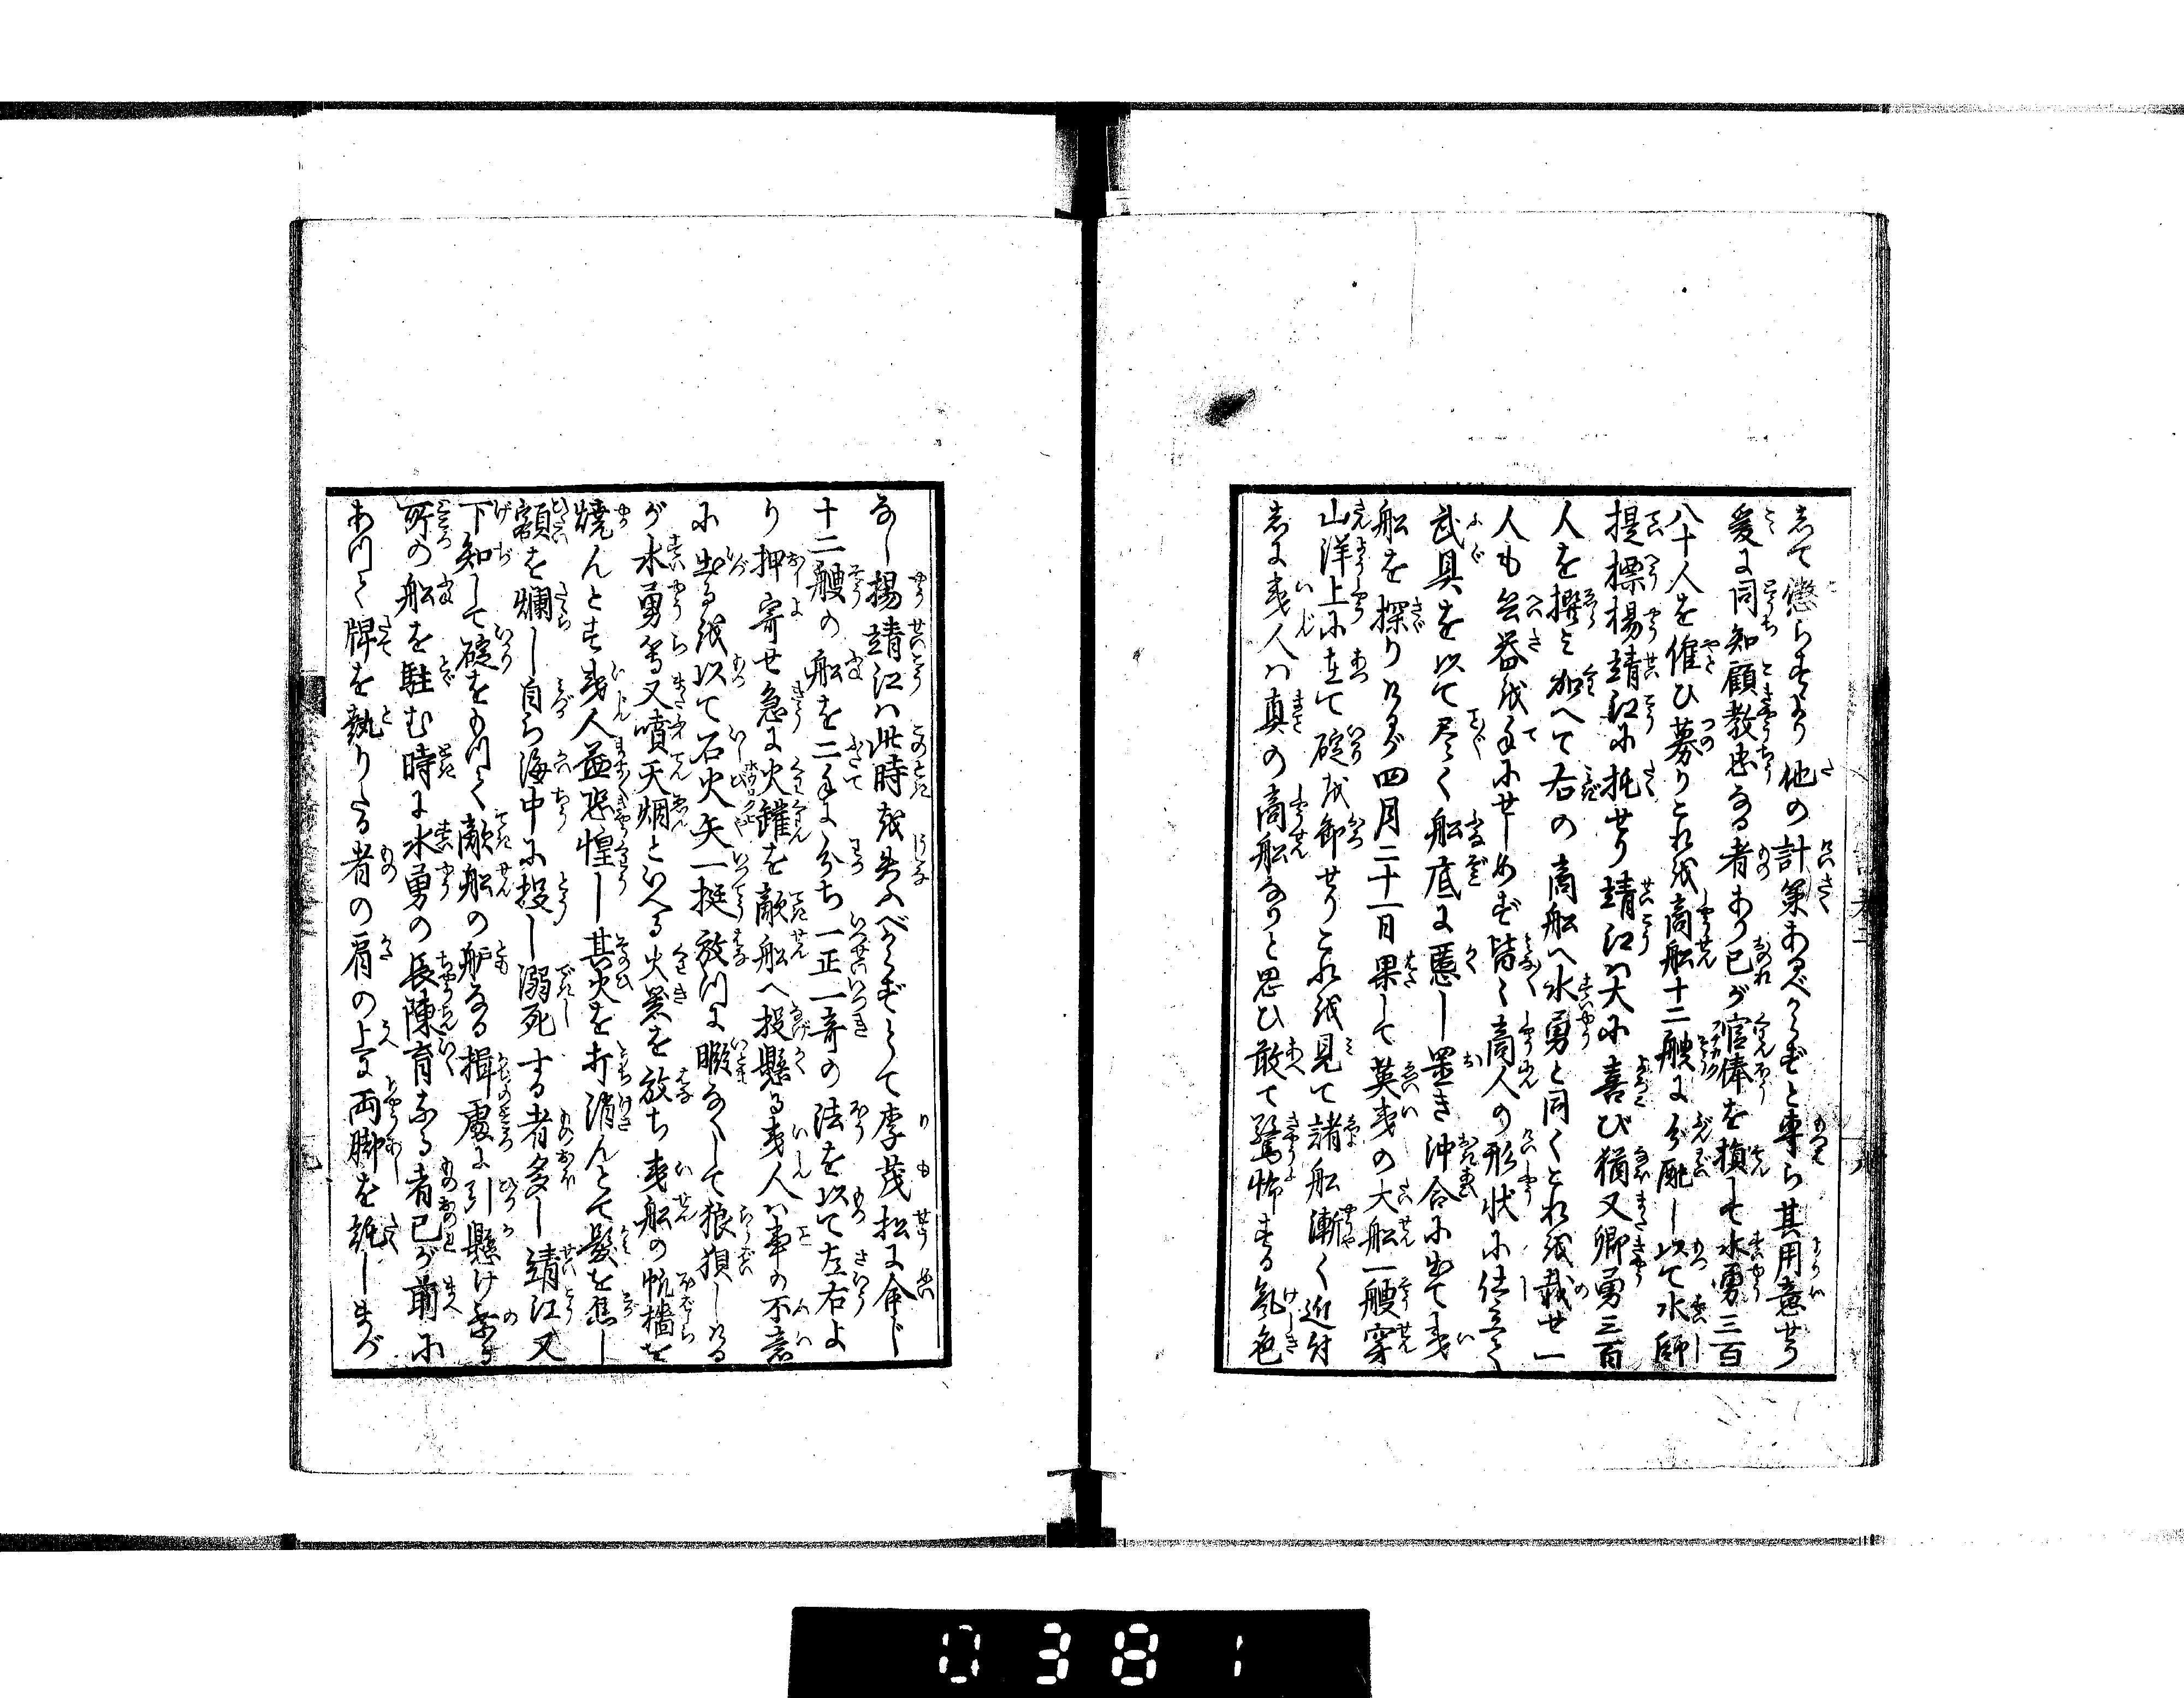 して懲らすより他の計策あるべからずと専ら其用意せり
爰に同知顧教忠なる者あり己が官俸を損して水勇三百
八十人を催ひ募りこれを商船十二艘に分配し以て水師
提標楊靖江に托せり靖江は大に喜び猶又郷勇三百
人を撰み加へて右の商船へ水勇と同くこれを載せ一
人も兵器を手にせしめず皆々商人の形状に仕立て
武具を以て尽く船底に匿し置き沖合に出て夷
船を探りけるが四月二十一日果して英夷の大船一艘穿
山洋上に在て碇を卸せりこれを見て諸船漸く近付
しに夷人は真の商船なりと思ひ敢て驚怖する気色
なし楊靖江は此時を失ふべからずとて李茂松に命じ
十二艘の船を二手に分ち一正一奇の法を以て左右よ
り押寄せ急に火鑵を敵船へ投懸る夷人は事の不意
に出るを以て石火矢一挺放つに暇なくして狼狽しける
が水勇等又噴天烟といへる火器を放ち夷船の帆檣を
焼んとす夷人益恐惶し其火を打消んとて髪を焦し
額を爛し自ら海中に投し溺死する者多し靖江又
下知して碇をもつて敵船の舮なる揖處に引懸け乗る
所の船を駐む時に水勇の長陳育なる者己が前に
あつて牌を執りたる者の肩の上に両脚を跳しまづ
0381